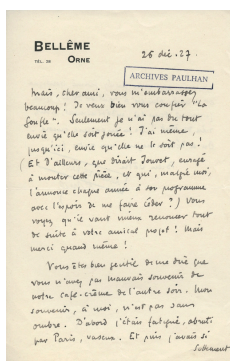 BELLÊME
TÉL. 28 ORNE
26 déc. 27.
ARCHIVES PAULHAN
Mais, cher ami, vous m'embarrassez
beaucoup ! Je veux bien vous confier "La
Gonfle". Seulement je n'ai pas du tout
envie qu'elle soit jouée ! J'ai même,
jusqu'ici, envie qu'elle ne le soit pas !
(Et d'ailleurs, que dirait Jouvet, enragé
à monter cette pièce, et qui, malgré moi,
l'annonce chaque année à son programme
avec l'espoir de me faire céder ?) Vous
voyez qu'il vaut mieux renoncer tout
de suite à votre amical projet ! Mais
merci quand même !
Vous êtes bien gentil de me dire que
vous n'avez pas mauvais souvenir de
notre café-crème de l'autre soir. Mon
souvenir, à moi, n'est pas sans
ombre. D'abord j'étais fatigué, abruti
par Paris, vaseux. Et puis j'avais si